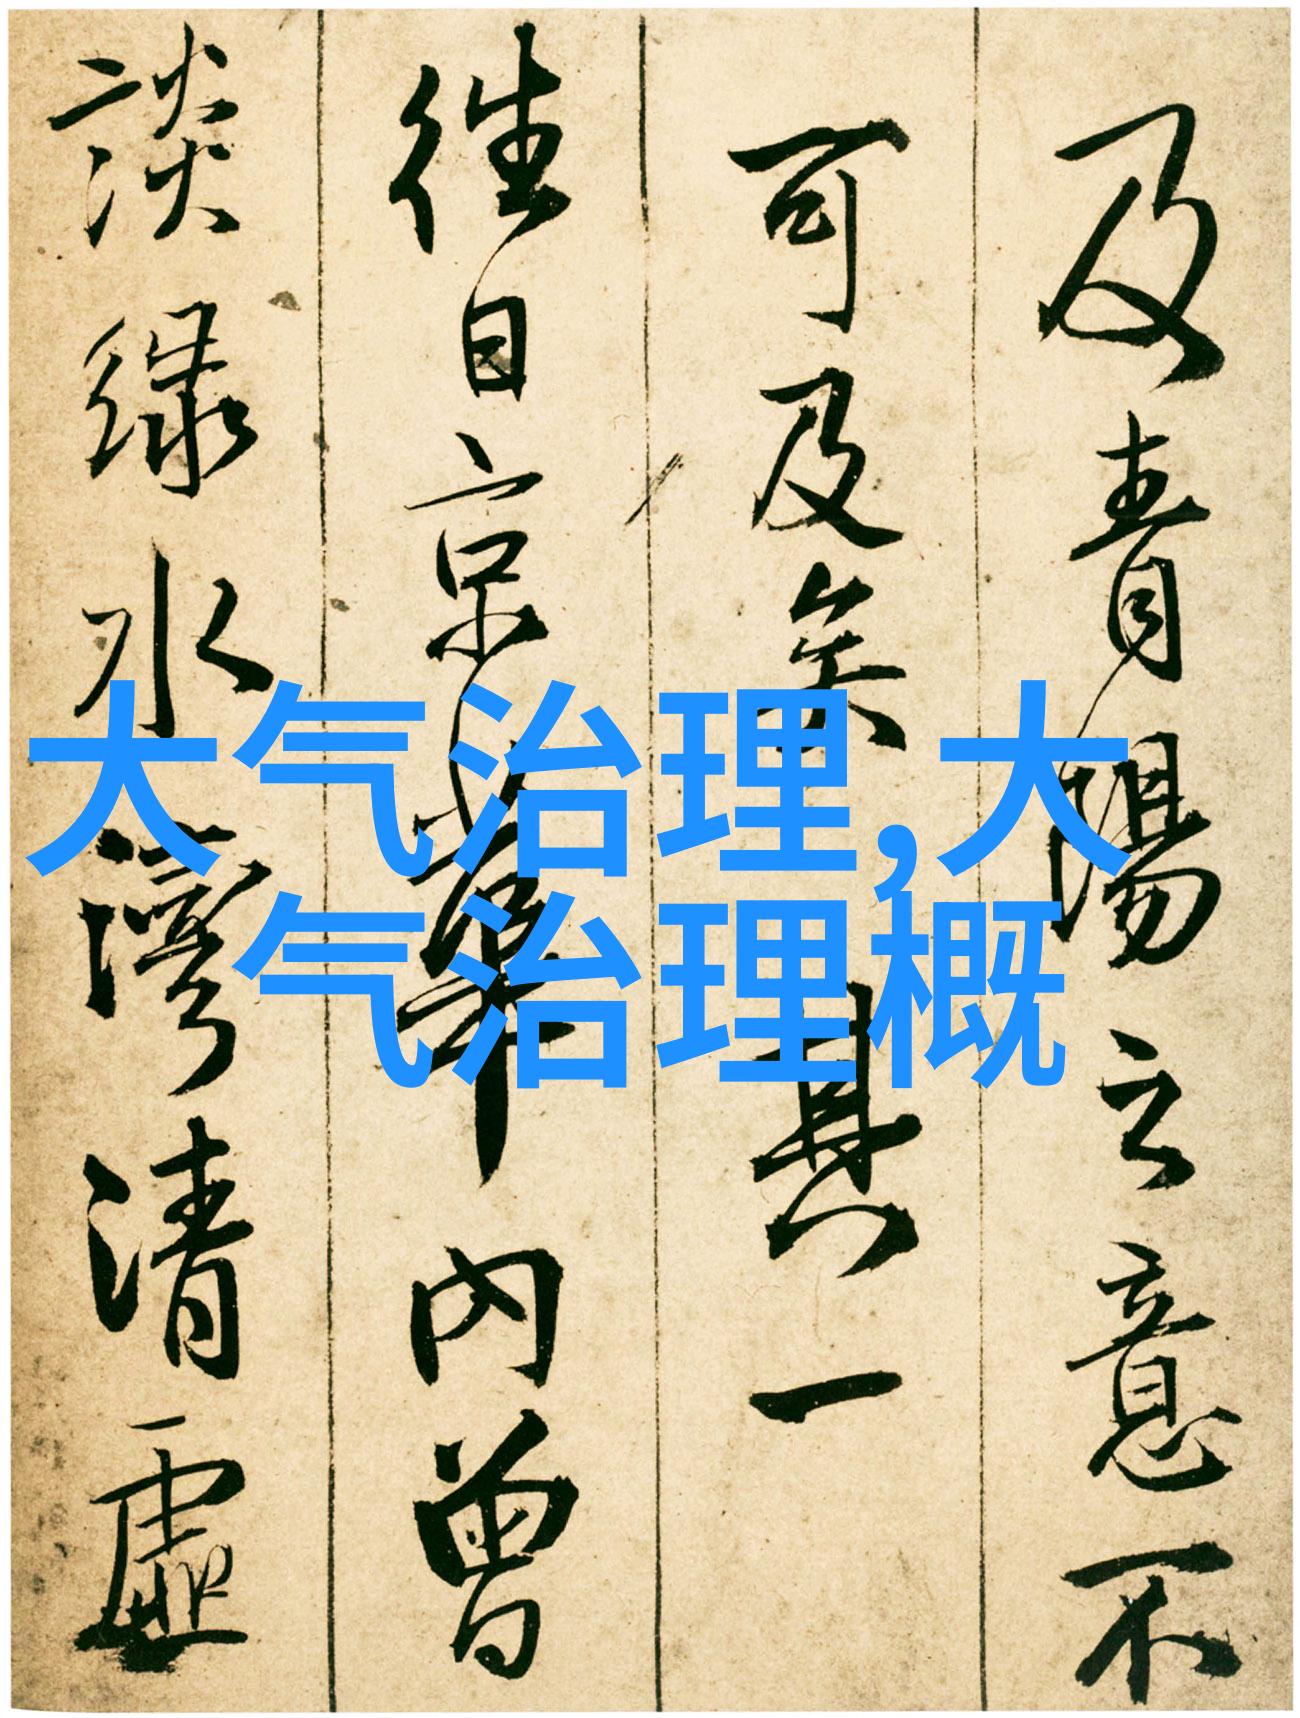 及青陽之意不
可及矣 其一
往日京華內曾
談綠水灣清虛
大气治理,大
气治理概